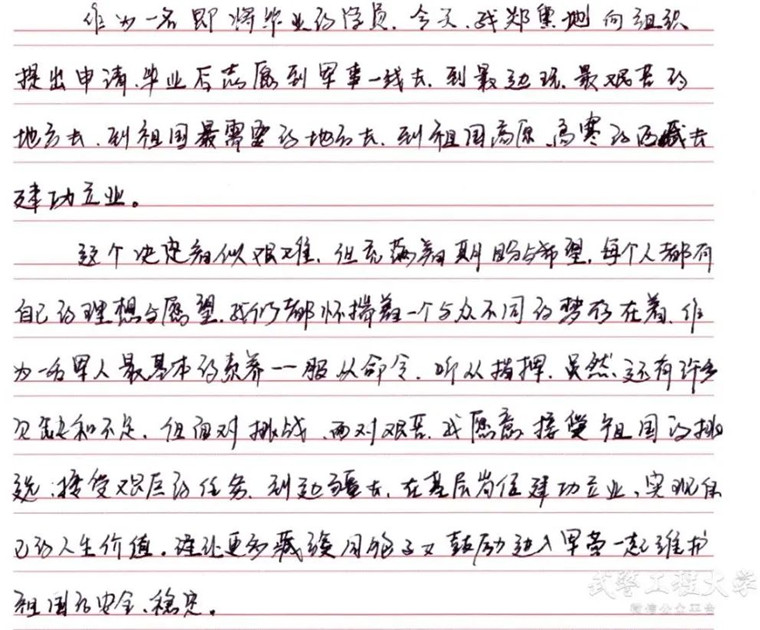 作为一名即将毕业的学员,今天,我郑重地向组织
提出申请,毕业后志愿到军事一线去,到最边远、最艰苦的
地方去,到祖国最需要的地方去,到祖国高原、高寒的西藏去
建功立业。
这个决定看似艰难,但充满着期盼与希望,每个人都有
自己的理想与愿望,我们都怀揣着一个与众不同的梦存在着,作
为一名军人最基本的素养——服从命令、听从指挥,虽然还有许多
欠缺和不足,但面对挑战,面对艰苦,我愿意接受祖国的挑
选,接受艰巨的任务,到边疆去,在基层岗位建功立业,实现自
己的人生价值,让更多藏族同胞子女鼓励进入军营一起维护
祖国的安全、稳定。
武警工程大学
微信公众平台